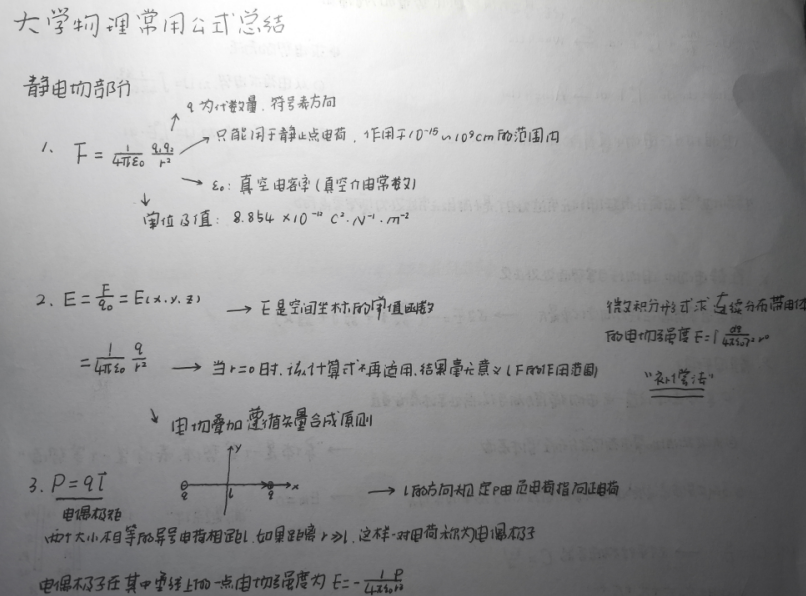 大学物理常用公式总结
静电场部分
q 为代数量，符号表方向
1、F = \frac{1}{4πε₀} \frac{q₁q₂}{r²} → 只能用于静止点电荷，作用于10⁻¹⁵~10⁹cm的范围内
→ ε₀：真空电容率(真空介电常数)
单位及值：8.854 ×10⁻¹² C²·N⁻¹·m⁻²
2、E = \frac{F}{q₀} = E(x,y,z) → E是空间坐标的单值函数
= \frac{1}{4πε₀} \frac{q}{r²} → 当r=0时，该计算式不再适用，结果毫无意义(F的作用范围)
微义积分形式求连续分布带电体
的电场强度E=∫\frac{dq}{4πε₀r²}r⁰
“补偿法”
电场叠加遵循矢量合成原则
3、P = ql
电偶极矩
y
q l q x
→ l的方向规定P由负电荷指向正电荷
两个大小相等的异号电荷相距l，如果距离r≫l，这样一对电荷称为电偶极子
电偶极子在其中垂线上的一点电场强度为E=-\frac{1}{4πε₀}\frac{P}{r³}